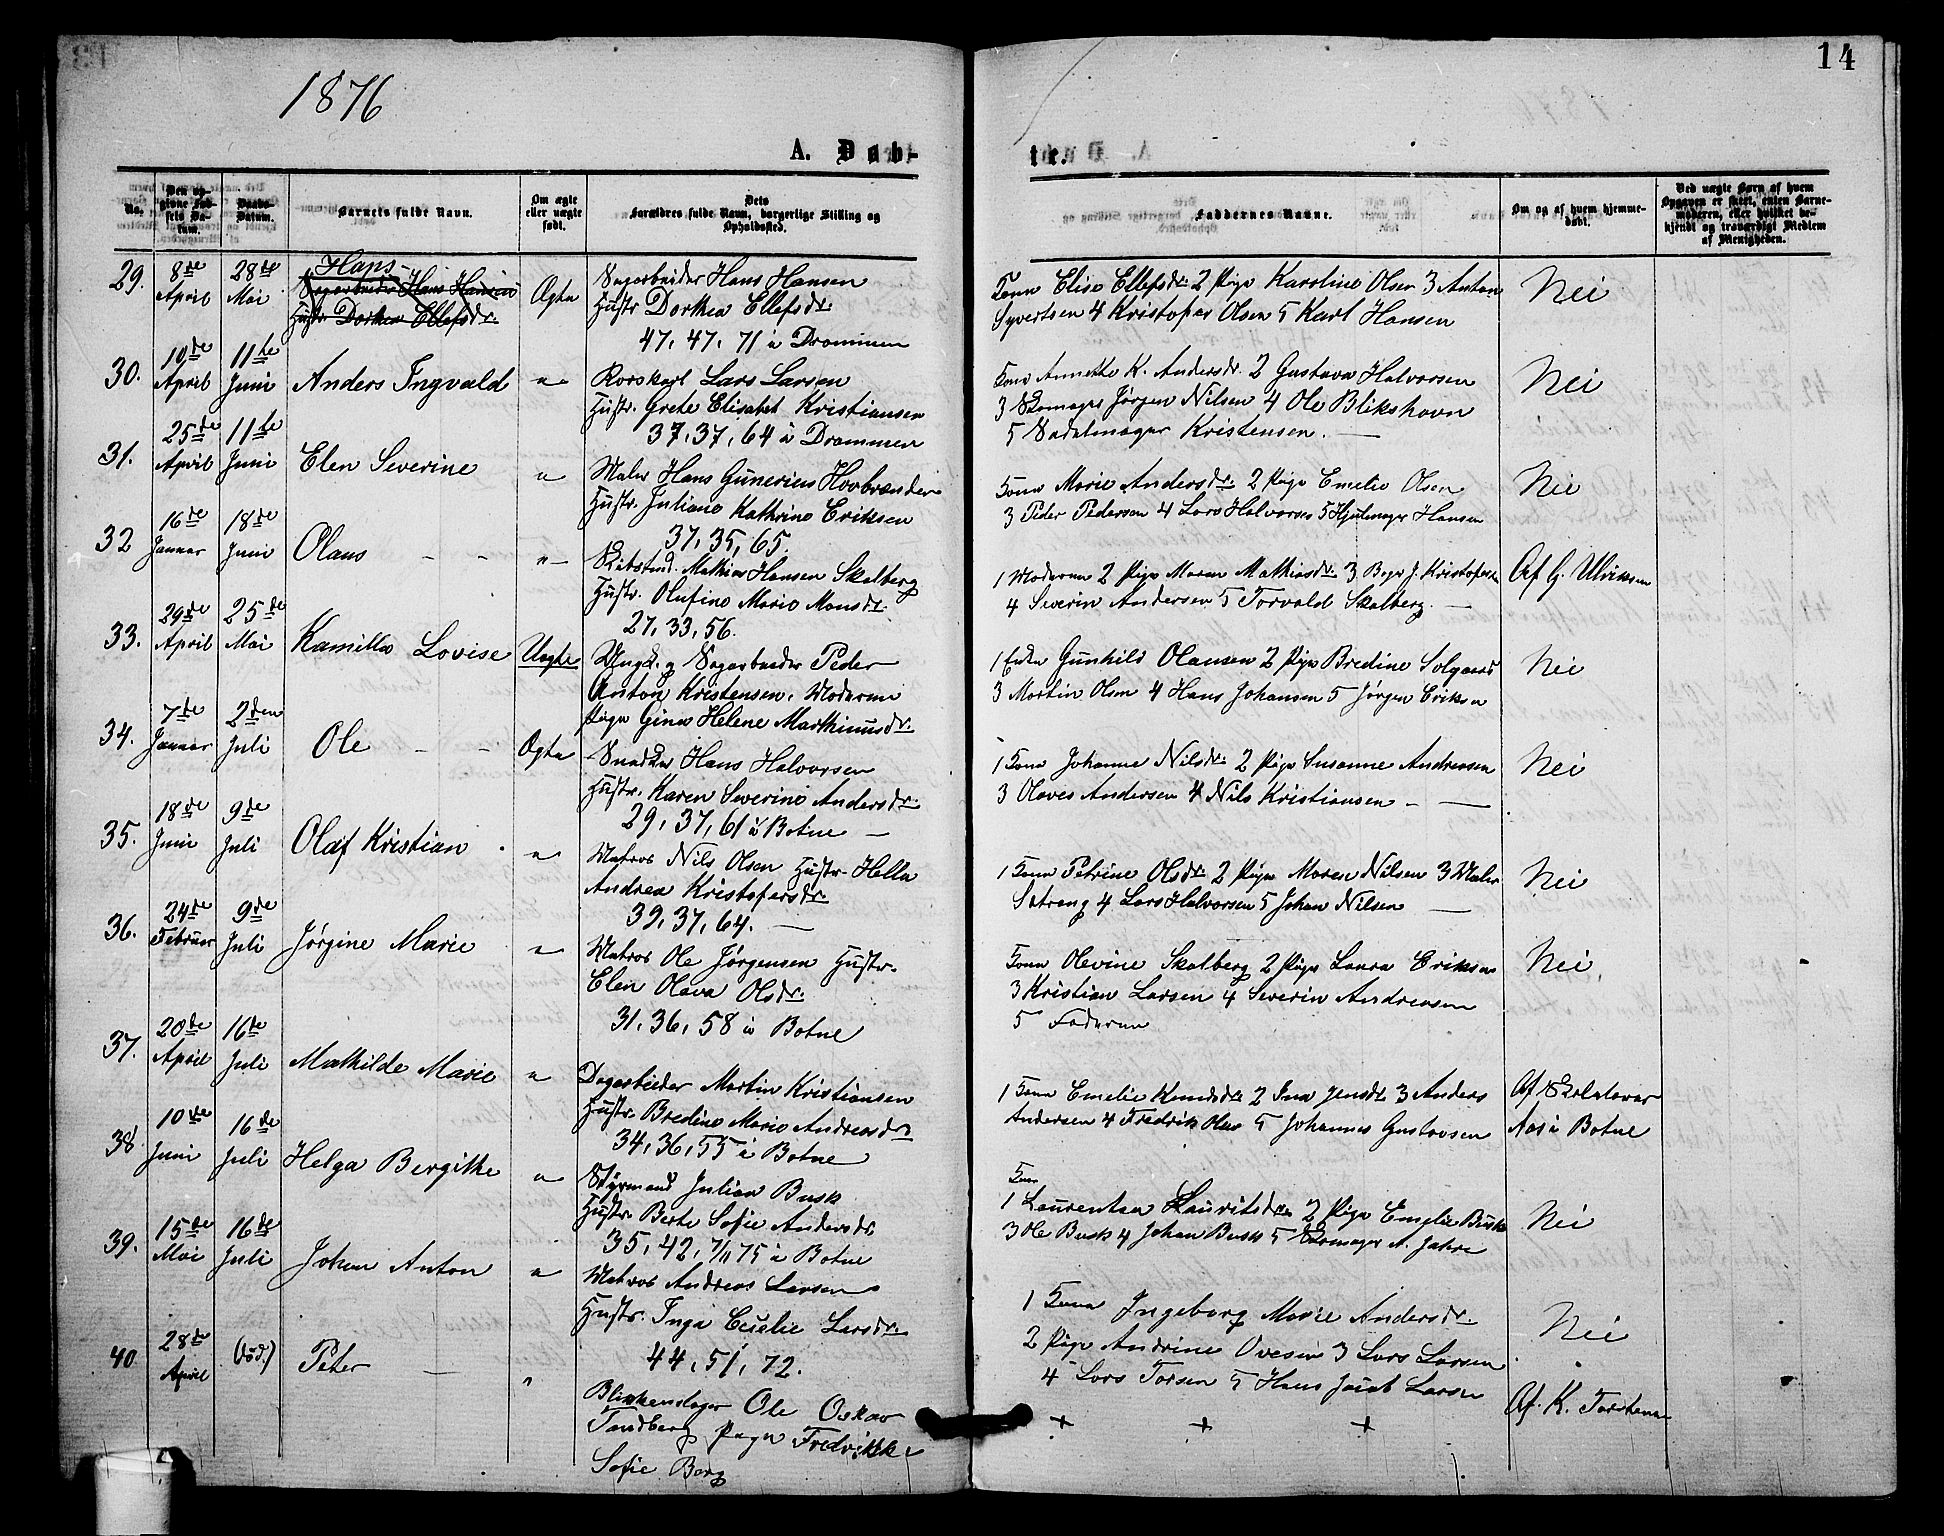 14
1876
A. Døb-
te.
No.
Den opgivne Fødsels Datum.
Daabs-Datum.
Barnets fulde Navn.
Om ægte eller uægte født.
Dets Forældres fulde Navn, borgerlige Stilling og Opholdssted.
Faddernes Navne.
Om og af hvem hjemmedøbt.
Ved uægte Børn af hvem Opgaven er skeet, enten Barnemoderen, eller hvilket bekjendt og troværdigt Medlem af Menigheden.
29.
8de April
28de Mai
Hans
Sagarbeider Hans Hansen
Hustr. Dorthea Ellefsdr.
Ægte
Sagarbeider Hans Hansen
Hustr Dorthea Ellefsdr.
47, 47, 71 i Drammen
Kone Elise Ellefsdr. 2 Pige Karoline Olsen 3 Anton
Syvertsen 4 Kristofer Olsen 5 Karl Hansen
Nei
30.
10de April
11te Juni
Anders Ingvald
"
Rorskarl Lars Larsen
Hustr. Grete Elisabet Kristiansen
37, 37, 64 i Drammen
Kone Annette K. Andersdr. 2 Gustava Halvorsen
3 Skomager Jørgen Nilsen 4 Ole Blikshavn
5 Sadelmager Kristensen.
Nei
31.
25de April
11te Juni
Elen Severine
"
Maler Hans Gunerius Hovbrænder
Hustr. Juliane Kathrine Eriksen
37, 35, 65.
Kone Marie Andersdr. 2 Pige Emelie Olsen
3 Peder Pedersen 4 Lars Halvorsen 5 Hjulmager Hansen
Nei
32
16de Januar
18de Juni
Olaus
"
Mathias Hansen Skalberg
Hustr. Olufine Marie Monsdr.
27, 33, 56.
1 Moderen 2 Pige Maren Mathiasdr. 3 J. Kristofersen
4 Severin Andersen 5 Torvald Skalberg.
Af G. Ulriksen
33.
29de April
25de Mai
Kamilla Lovise
Uægte
Ungk. og Sagarbeider Peder
Anton Kristensen. Moderen
Pige Gina Helene Marthinusdr.
1 Enke Gunhild Olausen 2 Pige Bredine Solgaard
3 Martin Olsen 4 Hans Johansen 5 Jørgen Eriksen
Nei
34.
7de Januar
2den Juli
Ole
Ægte
Snedker Hans Halvorsen
Hustr. Karen Severine Andersdr.
29, 37, 61 i Botne
1 Kone Johanne Nilsdr. 2 Pige Susanne Andreasen
3 Olaves Andersen 4 Nils Kristiansen
Nei
35.
18de Juni
9de Juli
Olaf Kristian
"
Matros Nils Olsen Hustr. Hella
Andrea Kristofersdr.
39, 37, 64.
1 Kone Petrine Olsdr. 2 Pige Maren Nilsen 3 Maler
Satrang 4 Lars Halvorsen 5 Johan Nilsen
Nei
36.
24de Februar
9de Juli
Jørgine Marie
"
Matros Ole Jørgensen Hustr.
Elen Olava Olsdr.
31, 36, 58 i Botne
Kone Olevine Skalberg 2 Pige Laura Eriksen
3 Kristian Larsen 4 Severin Andreasen
5 Faderen
Nei.
37.
20de April
16de Juli
Mathilde Marie
"
Dagarbeider Martin Kristiansen
Hustr. Bredine Marie Andreasdr
34, 36, 55 i Botne
1 Kone Emelie Knudsdr. 2 Ina Jensdr. 3 Anders
Andersen 4 Fredrik Olsen 5 Johannes Gustavsen
Af Skolelærer
Aas i Botne
38.
10de Juni
16de Juli
Helga Bergithe
"
Styrmand Julian Busk
Hustr. Berte Sofie Andersdr.
35, 42, 7/11 75 i Botne
Kone
1 Laurentsa Lauritsdr. 2 Pige Emelie Busk
3 Ole Busk 4 Johan Busk 5 Skomager A. Jahre
Nei
39.
15de Mai
16de Juli
Johan Anton
"
Matros Andreas Larsen
Hustr. Inga Cecilie Larsdr.
44, 51, 72.
1 Kone Ingeborg Marie Andersdr.
2 Pige Andrine Ovesen 3 Lars Larsen
4 Lars Torsen 5 Hans Jacob Larsen
Nei
40
28de April
(død.)
Peter
"
Blikkenslager Ole Oskar
Tandberg Pige Fredrikke
Sofie Berg
+ + +
Af K. Torstensen